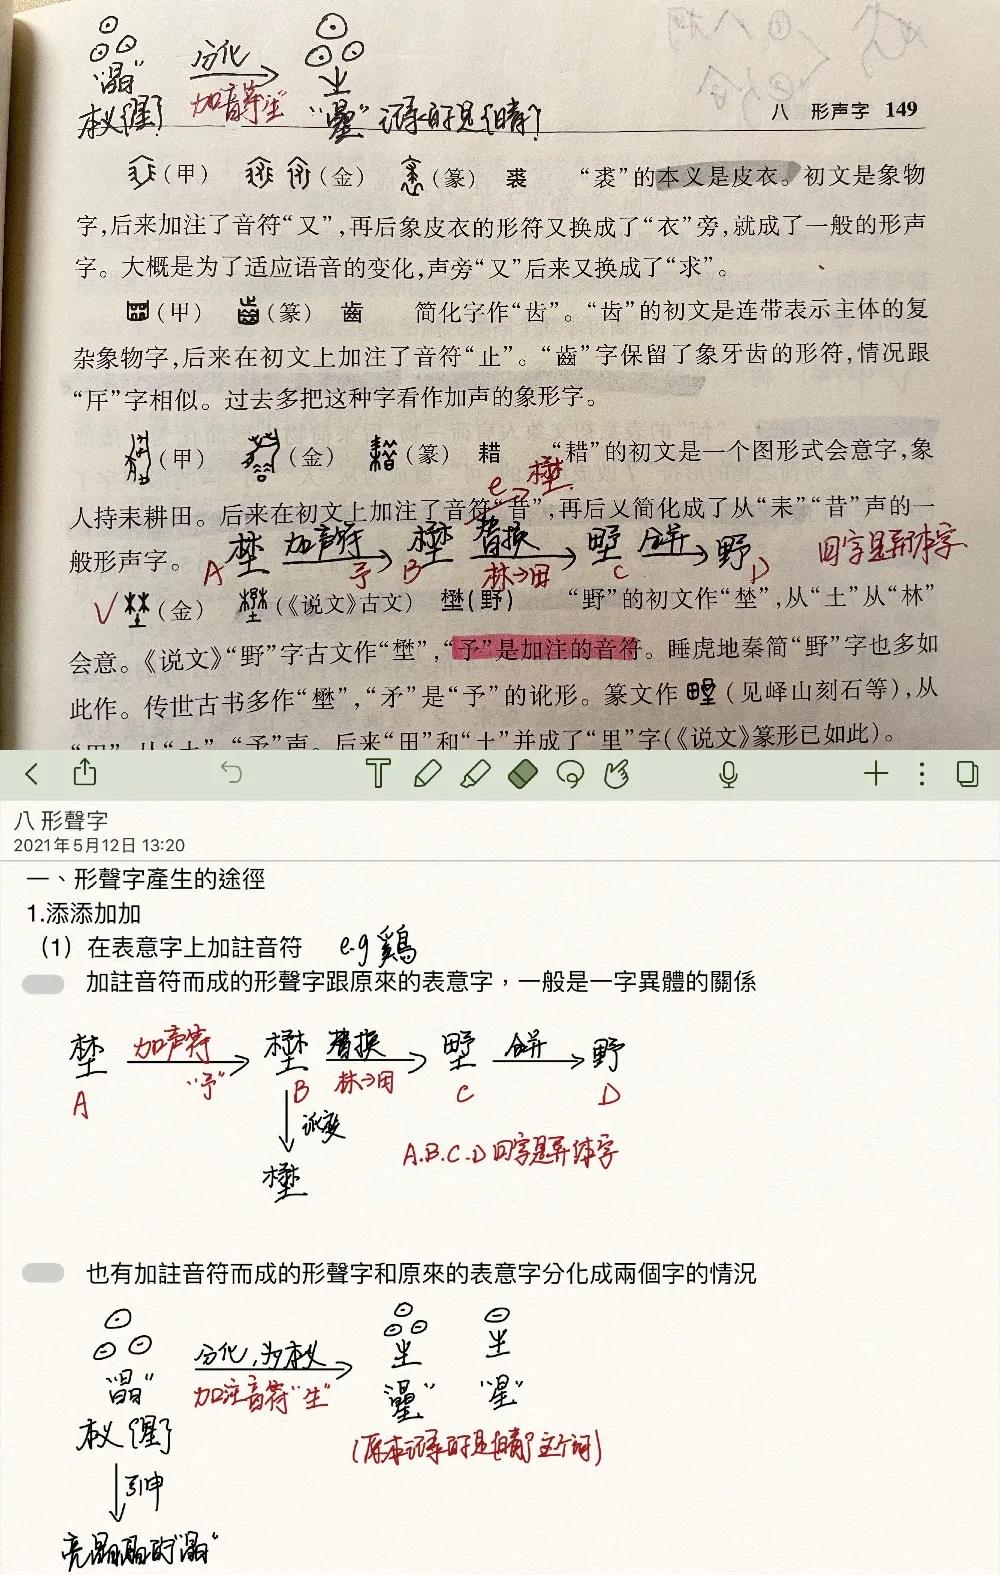 分化
"晶"
加音符"生"
本义{星}
"曐"记录的是{晴}?
八 形声字 149
(甲) (金) (篆) 裘 “裘”的本义是皮衣。初文是象物
字,后来加注了音符“又”,再后象皮衣的形符又换成了“衣”旁,就成了一般的形声
字。大概是为了适应语音的变化,声旁“又”后来又换成了“求”。
(甲) (篆) 齒 简化字作“齿”。“齿”的初文是连带表示主体的复
杂象物字,后来在初文上加注了音符“止”。“齒”字保留了象牙齿的形符,情况跟
字相似。过去多把这种字看作加声的象形字。
(甲) (金) (篆) 耤 “耤”的初文是一个图形式会意字,象
e→
人持耒耕田。后来在初文上加注了音符“昔”,再后又简化成了从“耒”“昔”声的一
般形声字。
A 埜 加声符 予 B 替换 林→田 C 合并 野 D 四字是异体字
(金) (《说文》古文) (野) “野”的初文作“埜”,从“土”从“林”
会意。《说文》“野”字古文作“壄”,“予”是加注的音符。睡虎地秦简“野”字也多如
此作。传世古书多作“壄”,“矛”是“予”的讹形。篆文作 (见峄山刻石等),从
“田”从“土”,“予”声。后来“田”和“土”并成了“里”字(《说文》篆形已如此)。
八 形聲字
2021年5月12日 13:20
一、形聲字產生的途徑
1.添添加加
(1)在表意字上加註音符 e.g 鷄
加註音符而成的形聲字跟原來的表意字,一般是一字異體的關係
埜 加声符 "予" 替换 林→田 合并 野
A B C D
讹变
A.B.C.D四字是异体字
也有加註音符而成的形聲字和原來的表意字分化成兩個字的情況
分化,为本义
"晶" 加注音符"生" "曐" "星"
本义{星}
(原本记录的是{晴}这个词)
引申
亮晶晶的"晶"